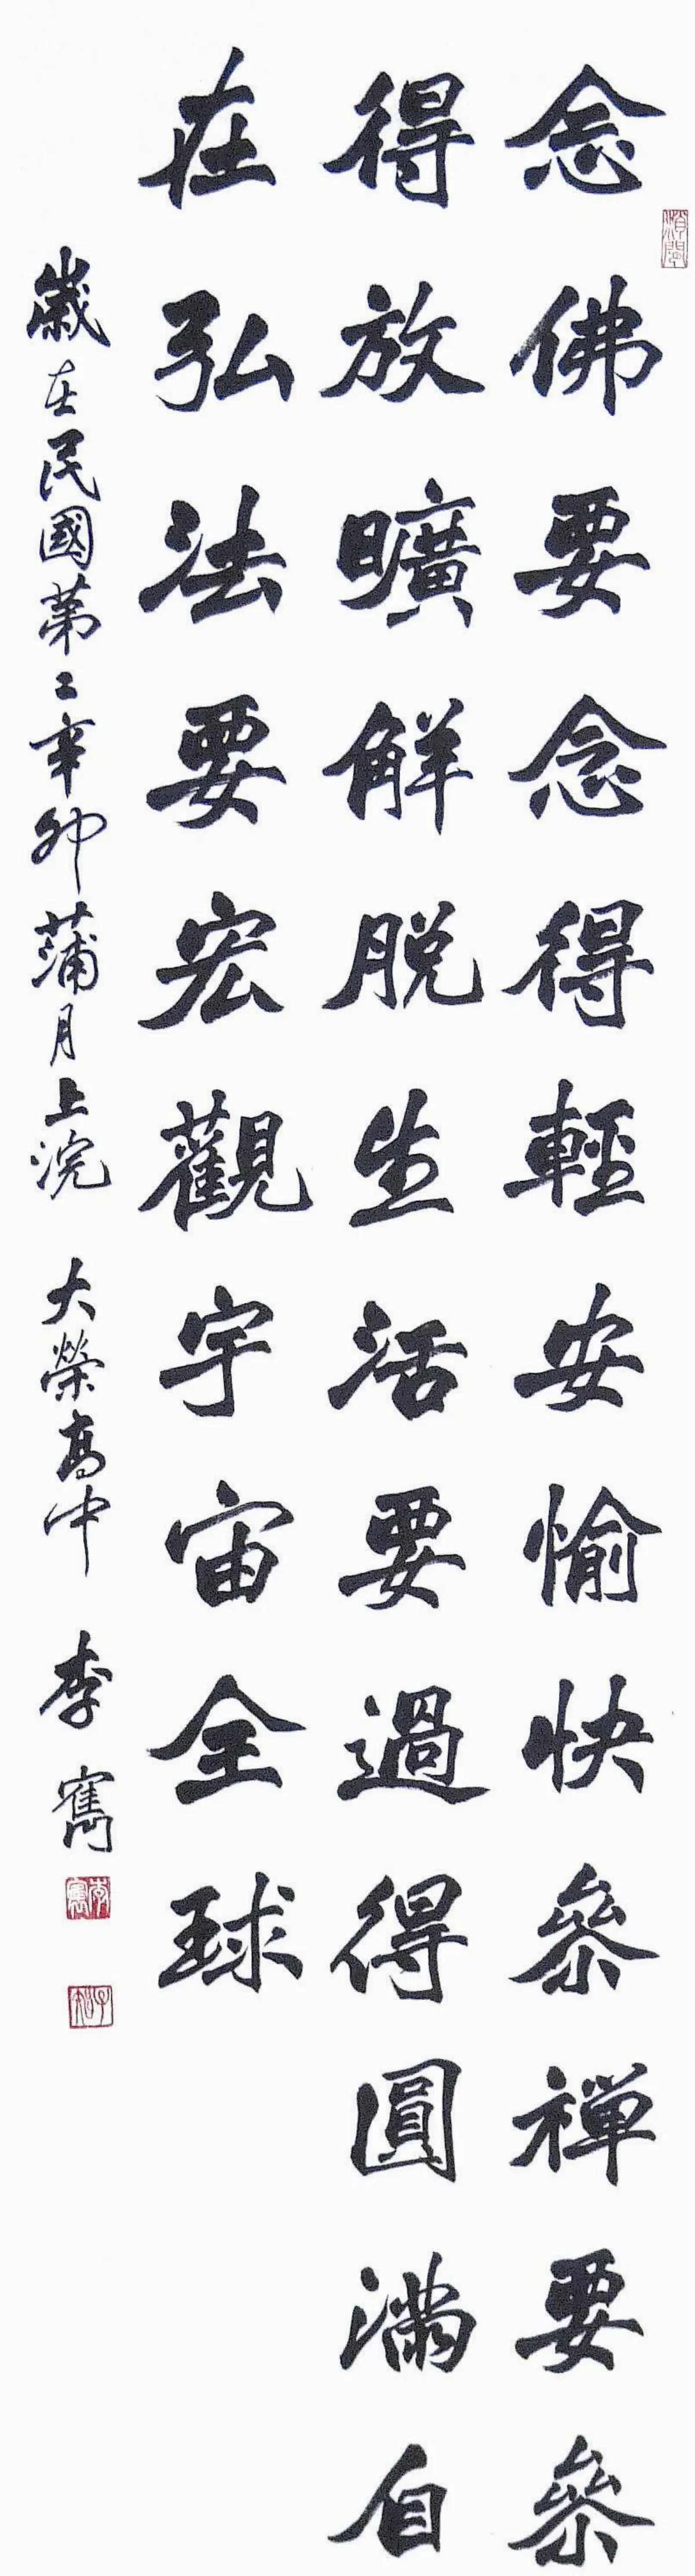 念佛要念得輕安愉快參禪要參
得放曠解脫生活要過得圓滿自
在弘法要宏觀宇宙全球
歲在民國第二辛卯蒲月上浣 大榮高中 李寯